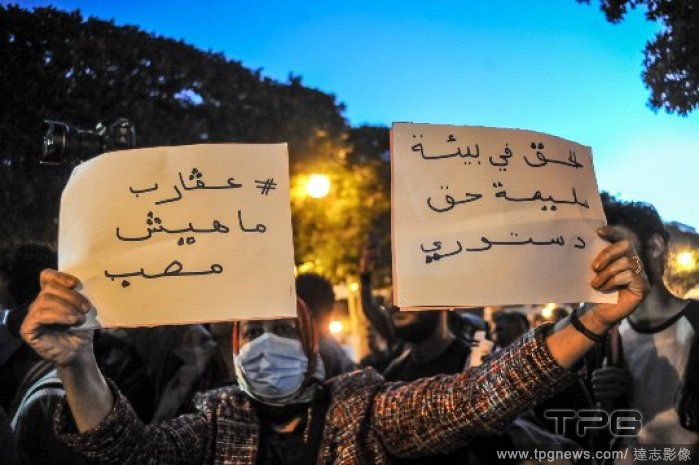 #عقارب
ماهيش
مصب
الحق في بيئة
سليمة حق
دستوري
TPG
www.tpgnews.com/ 達志影像